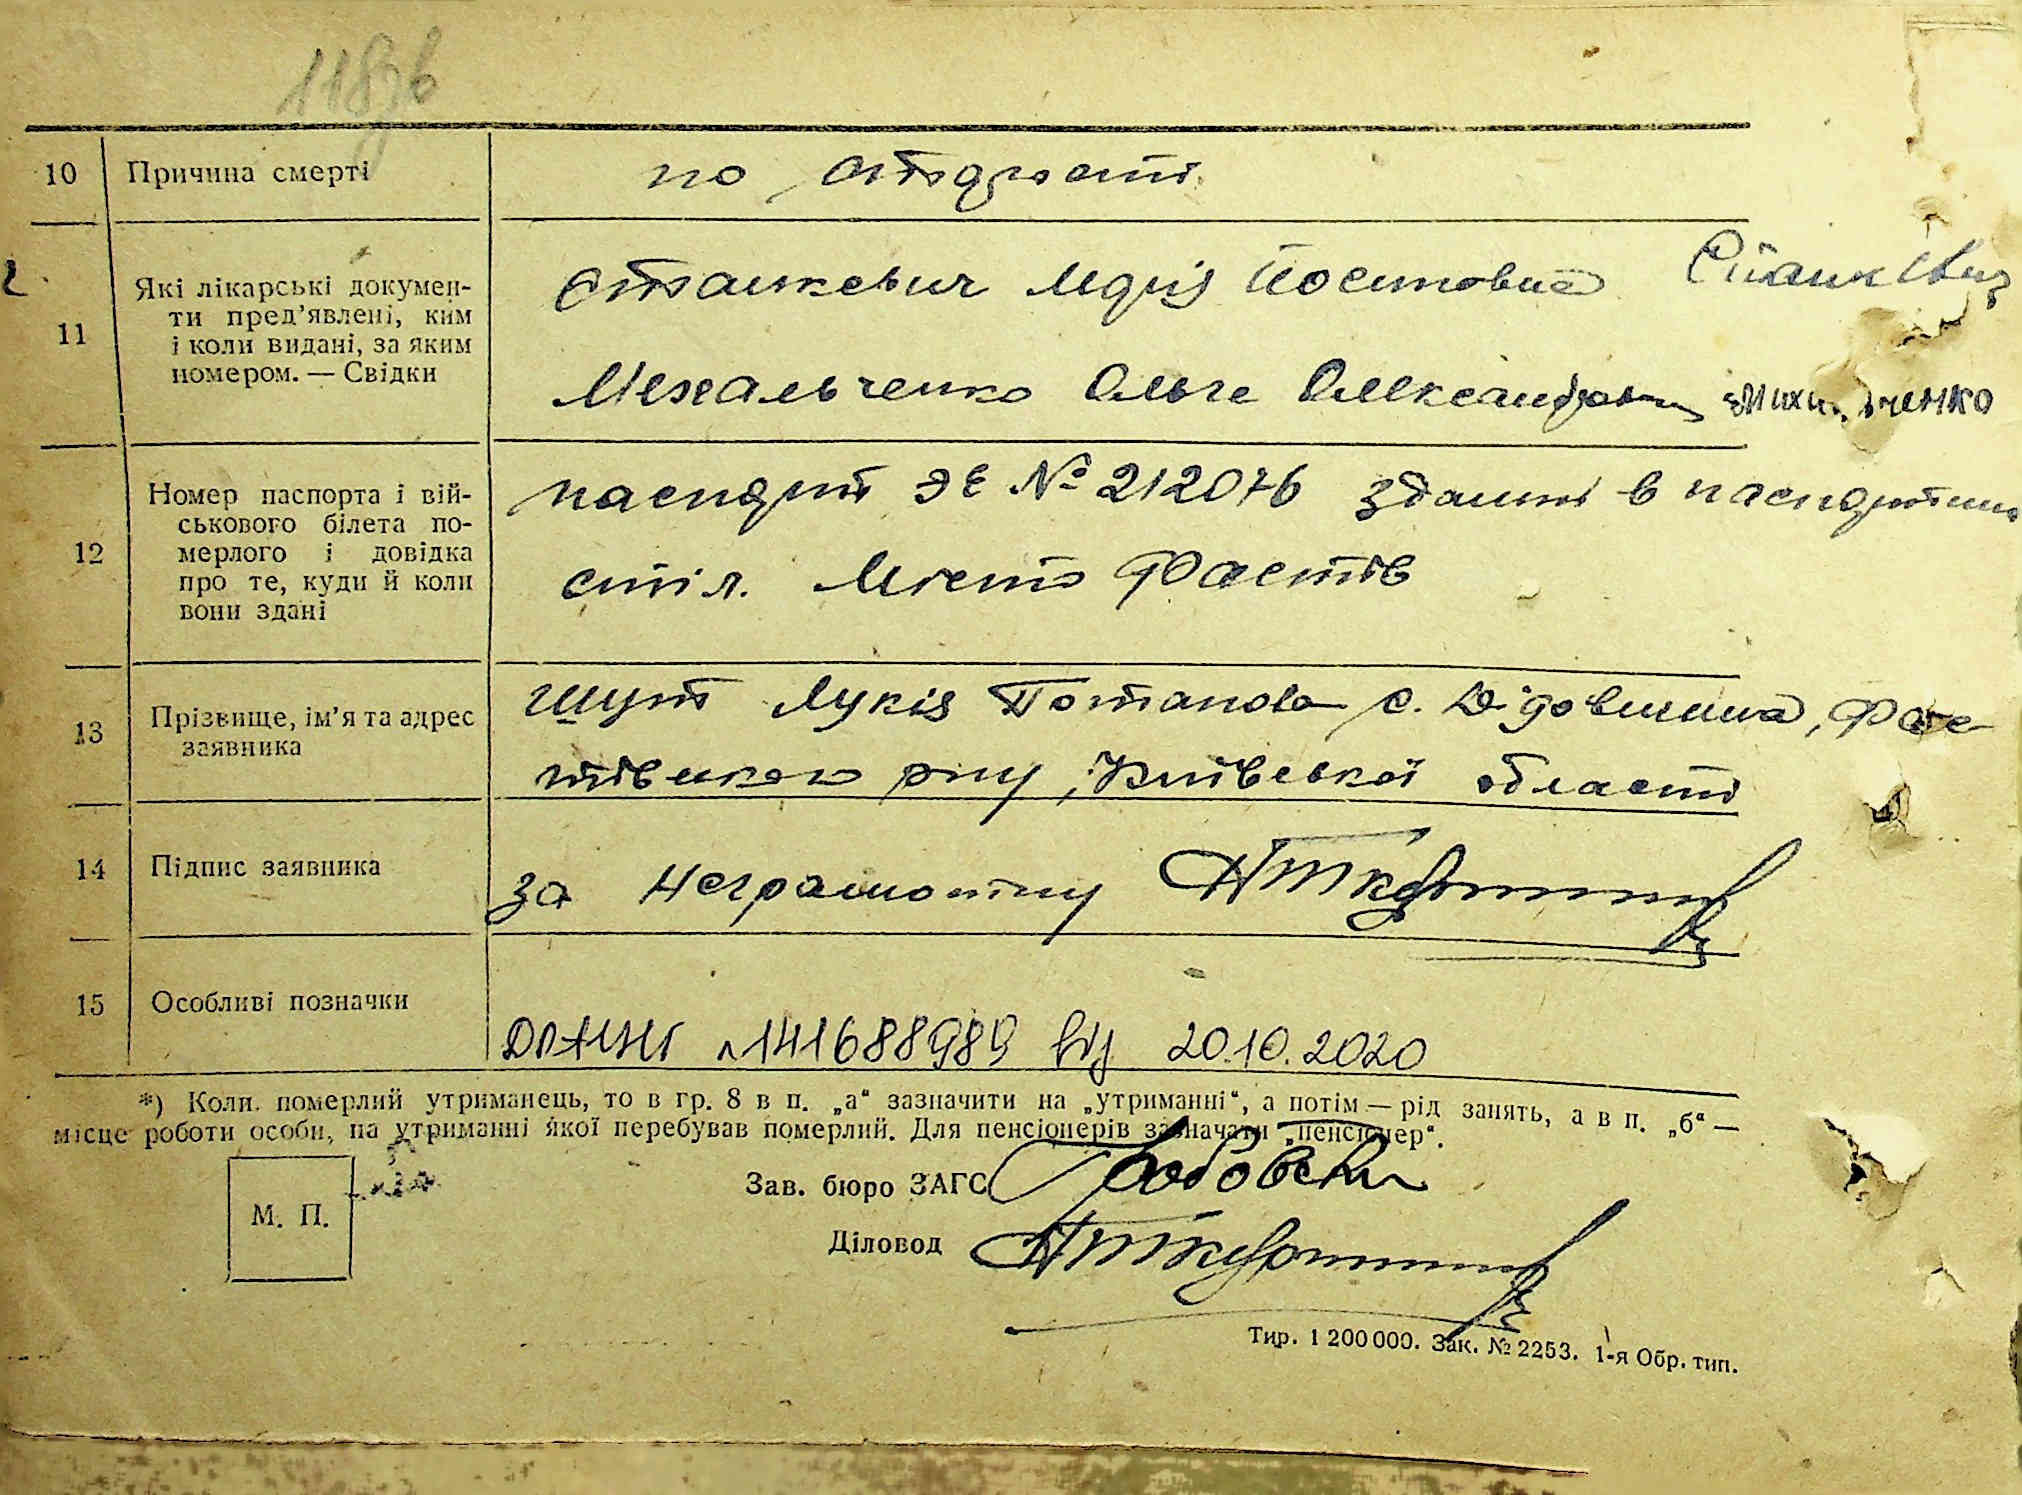 118зв
10 Причина смерті по старості
11 Які лікарські докумен-
ти пред’явлені, ким
і коли видані, за яким
номером. — Свідки
Станкевич Марія Йосиповна
Михальченко Ольга Олександровна Михальченко
12 Номер паспорта і вій-
ськового білета по-
мерлого і довідка
про те, куди й коли
вони здані
паспорт ЭЕ № 212076 здані в паспортний
стіл. Місто Фастів
13 Прізвище, ім’я та адрес
заявника
Шут Лукія Потапова с. Дідовщина, Фас-
тівського р-ну, Київської області
14 Підпис заявника за неграмотну
15 Особливі позначки
№141688989 від 20.10.2020
*) Коли померлий утриманець, то в гр. 8 в п. „а“ зазначити на „утриманні“, а потім — рід занять, а в п. „б“ —
місце роботи особи, на утриманні якої перебував померлий. Для пенсіонерів зазначати „пенсіонер“.
М. П.
Зав. бюро ЗАГС
Діловод
Тир. 1 200 000. Зак. № 2253. 1-я Обр. тип.